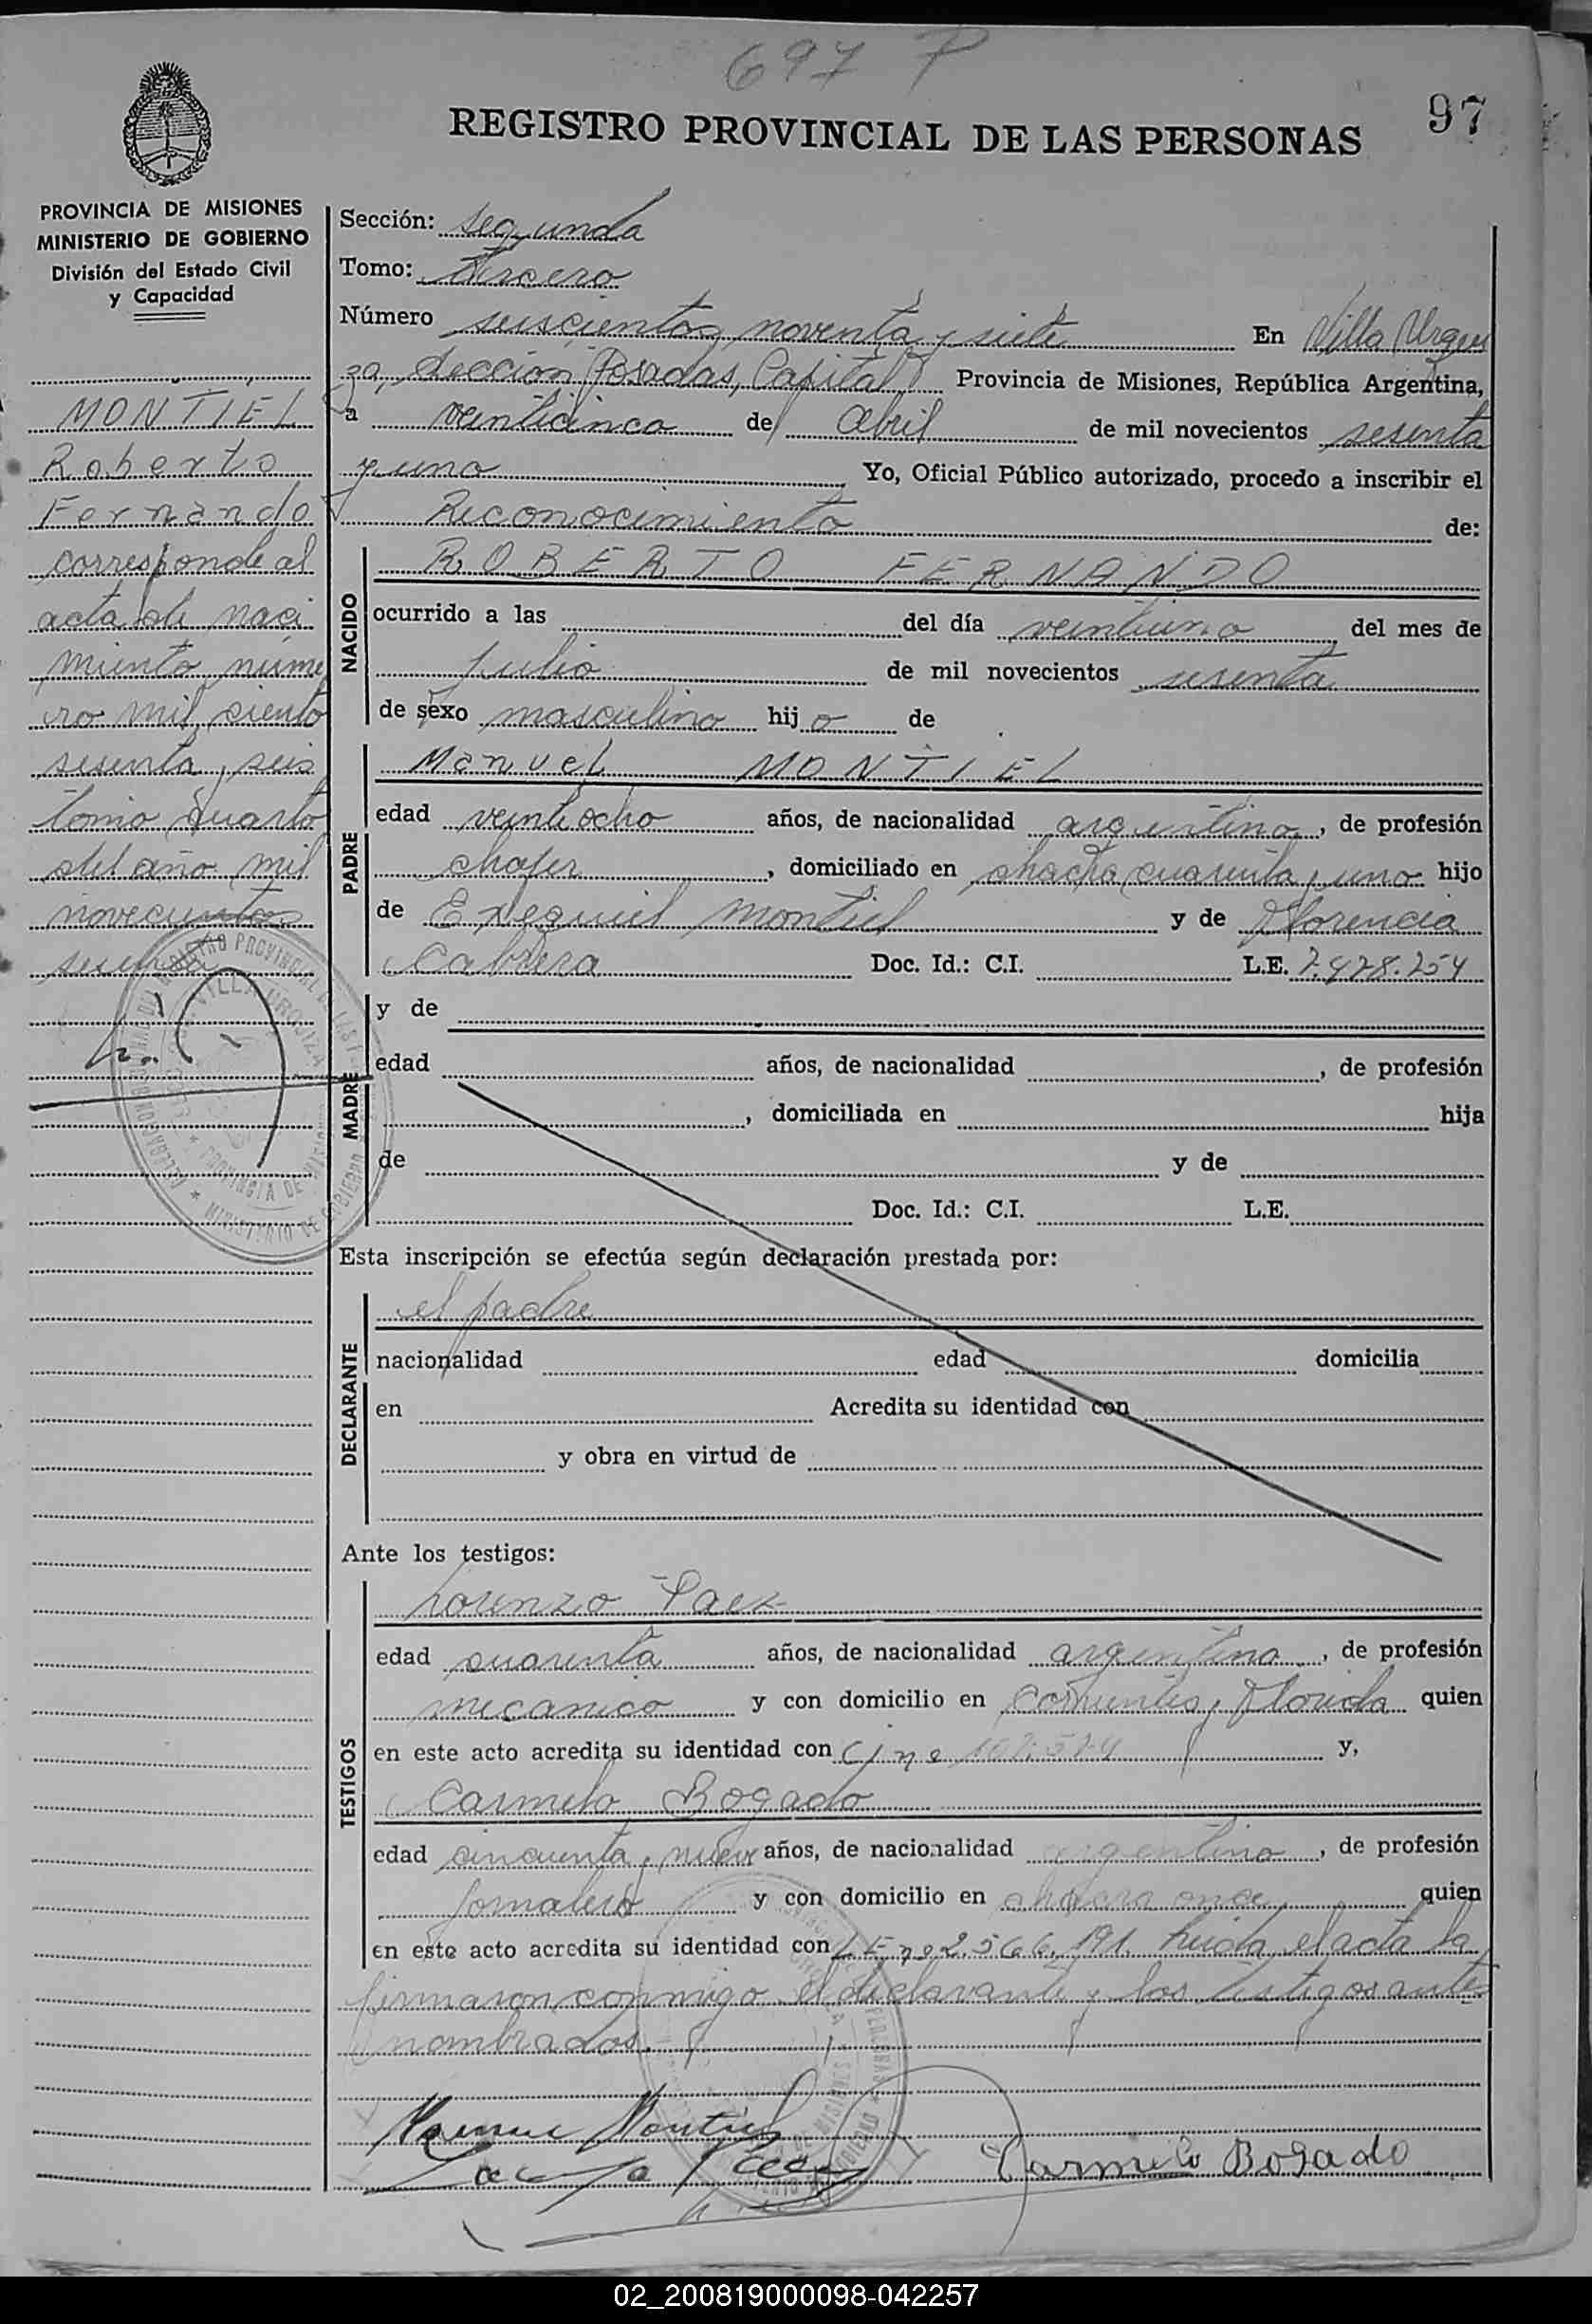 697 P
97
REGISTRO PROVINCIAL DE LAS PERSONAS
PROVINCIA DE MISIONES
MINISTERIO DE GOBIERNO
División del Estado Civil
y Capacidad
MONTIEL
Roberto
Fernando
corresponde al
acta de naci
miento núme
ro mil ciento
sesenta y seis
tomo cuarto
del año mil
novecientos
sesenta
Sección: segunda
Tomo: tercero
Número seiscientos noventa y siete En Villa Urqui
za, Sección Posadas, Capital Provincia de Misiones, República Argentina,
a veinticinco de abril de mil novecientos sesenta
y uno Yo, Oficial Público autorizado, procedo a inscribir el
Reconocimiento de:
NACIDO
ROBERTO FERNANDO
ocurrido a las del día veintiuno del mes de
julio de mil novecientos sesenta
de sexo masculino hijo de
PADRE
Manuel MONTIEL
edad veintiocho años, de nacionalidad argentina, de profesión
chofer, domiciliado en chacra cuarenta y uno hijo
de Exequiel Montiel y de Florencia
Cabrera Doc. Id.: C.I. L.E. 7.478.254
MADRE
y de
edad años, de nacionalidad , de profesión
, domiciliada en hija
de y de
Doc. Id.: C.I. L.E.
Esta inscripción se efectúa según declaración prestada por:
DECLARANTE
el padre
nacionalidad edad domicilia
en Acredita su identidad con
y obra en virtud de
Ante los testigos:
TESTIGOS
Lorenzo Paez
edad cuarenta años, de nacionalidad argentina, de profesión
mecanico y con domicilio en Corrientes y Florida quien
en este acto acredita su identidad con C I nº 107.574 y,
Carmelo Bogado
edad cincuenta y nueve años, de nacionalidad argentina, de profesión
jornalero y con domicilio en chacra once quien
en este acto acredita su identidad con L E nº 2.566.191. Leida el acta la
firmaron conmigo el declarante y los testigos ante
nombrados.
Manuel Montiel
Carmelo Bogado
02_200819000098-042257